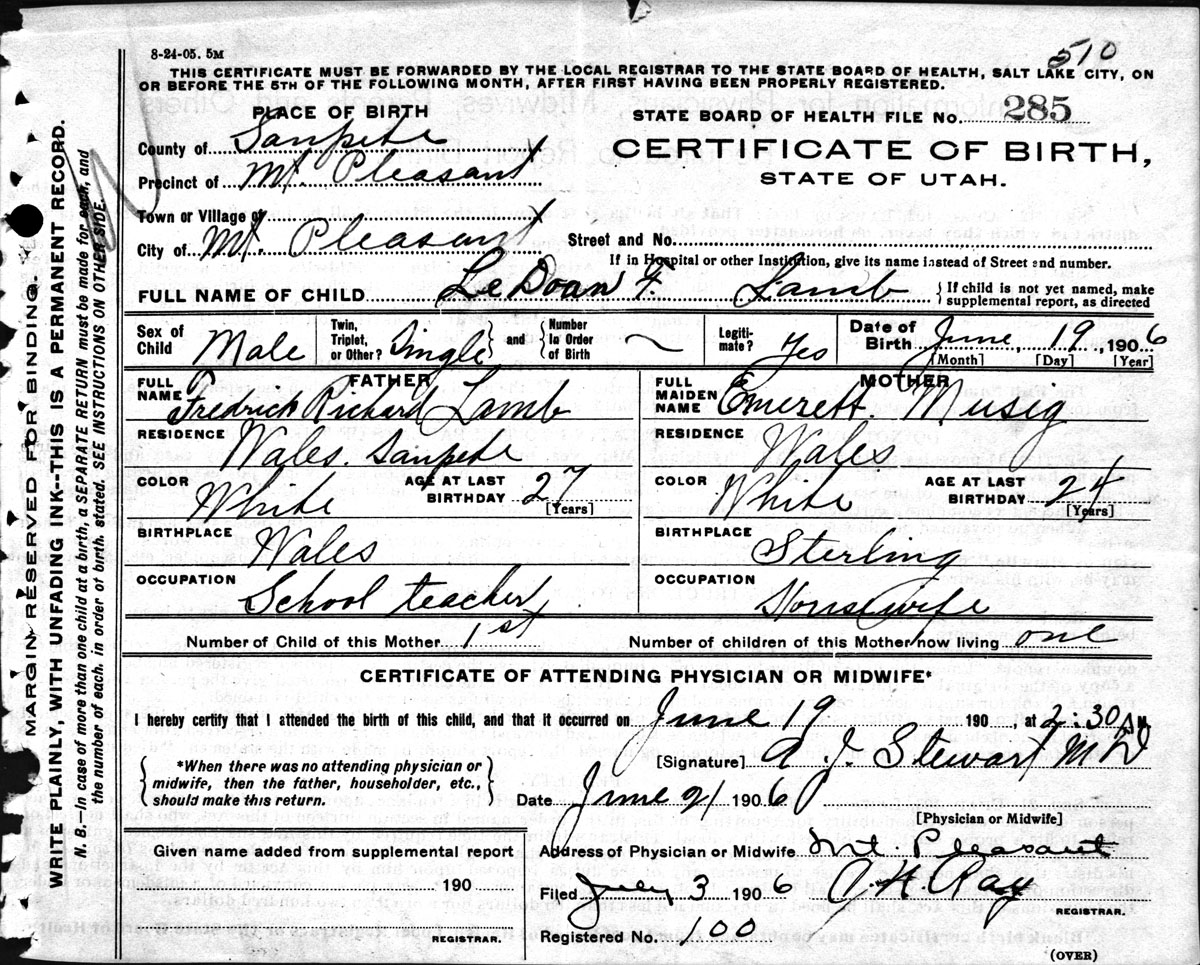 8-24-05. 5M
510
THIS CERTIFICATE MUST BE FORWARDED BY THE LOCAL REGISTRAR TO THE STATE BOARD OF HEALTH, SALT LAKE CITY, ON
OR BEFORE THE 5TH OF THE FOLLOWING MONTH, AFTER FIRST HAVING BEEN PROPERLY REGISTERED.
PLACE OF BIRTH
STATE BOARD OF HEALTH FILE No. 285
County of Sanpete
CERTIFICATE OF BIRTH,
STATE OF UTAH.
Precinct of Mt. Pleasant
Town or Village of
City of Mt. Pleasant
Street and No.
If in Hospital or other Institution, give its name instead of Street and number.
FULL NAME OF CHILD LeDoan F. Lamb {If child is not yet named, make
supplemental report, as directed
Sex of Child Male
Twin, Triplet, or Other? Single } and { Number In Order of Birth
Legiti-mate? Yes
Date of Birth June, 19, 1906
[Month] [Day] [Year]
FATHER
FULL NAME Fredrick Richard Lamb
RESIDENCE Wales. Sanpete
COLOR White AGE AT LAST BIRTHDAY 27 [Years]
BIRTHPLACE Wales
OCCUPATION School teacher
MOTHER
FULL MAIDEN NAME Emerett. Musig
RESIDENCE Wales
COLOR White AGE AT LAST BIRTHDAY 24 [Years]
BIRTHPLACE Sterling
OCCUPATION Housewife
Number of Child of this Mother 1st Number of children of this Mother now living one
CERTIFICATE OF ATTENDING PHYSICIAN OR MIDWIFE*
I hereby certify that I attended the birth of this child, and that it occurred on June 19 190 , at 2:30 A M
*When there was no attending physician or
midwife, then the father, householder, etc.,
should make this return.
[Signature] A. J. Stewart MD
Date June 21 1906
[Physician or Midwife]
Given name added from supplemental report
190
REGISTRAR.
Address of Physician or Midwife Mt. Pleasant
Filed July 3 1906 A H Ray
REGISTRAR.
Registered No. 100
(OVER)
MARGIN RESERVED FOR BINDING.
WRITE PLAINLY, WITH UNFADING INK--THIS IS A PERMANENT RECORD.
N. B.--In case of more than one child at a birth, a SEPARATE RETURN must be made for each, and
the number of each, in order of birth, stated. SEE INSTRUCTIONS ON OTHER SIDE.